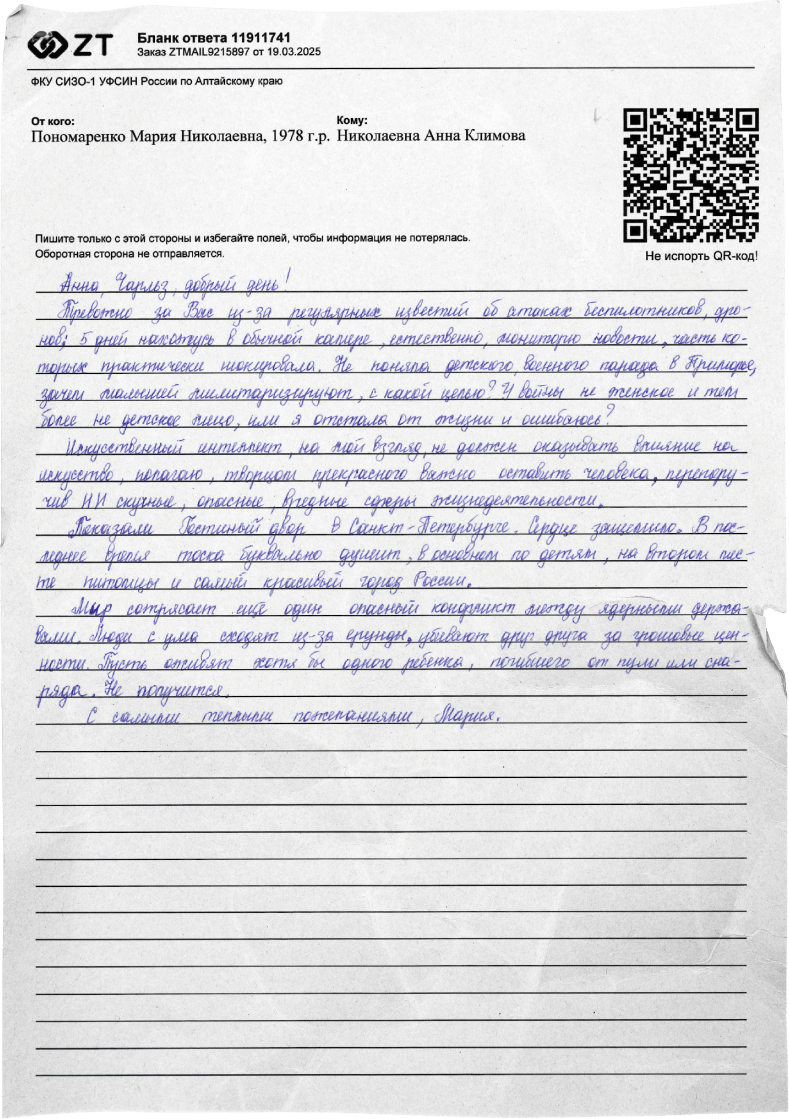 ZT
Бланк ответа 11911741
Заказ ZTMAIL9215897 от 19.03.2025
ФКУ СИЗО-1 УФСИН России по Алтайскому краю
От кого:
Кому:
Пономаренко Мария Николаевна, 1978 г.р.
Николаевна Анна Климова
Пишите только с этой стороны и избегайте полей, чтобы информация не потерялась.
Оборотная сторона не отправляется.
Не испорть QR-код!
Анна, Чарльз, добрый день!
Тревожно за Вас из-за регулярных известий об атаках беспилотников, дро-
нов; 5 дней нахожусь в обычной камере, естественно, мониторю новости, часть ко-
торых практически шокировала. Не поняла детского военного парада в Приморье,
зачем малышей милитаризируют, с какой целью? У войны не женское и тем
более не детское лицо, или я отстала от жизни и ошибаюсь?
Искусственный интеллект, на мой взгляд, не должен оказывать влияние на
искусство, полагаю, творцом прекрасного важно оставить человека, перепору-
чив ИИ скучные, опасные, вредные сферы жизнедеятельности.
Показали Гостиный двор в Санкт-Петербурге. Сердце защемило. В пос-
леднее время тоска буквально душит, в основном по детям, на втором мес-
те питомцы и самый красивый город России.
Мир сотрясает ещё один опасный конфликт между ядерными держа-
вами. Люди с ума сходят из-за ерунды, убивают друг друга за грошовые цен-
ности. Пусть оживят хотя бы одного ребенка, погибшего от пули или сна-
ряда. Не получится.
С самыми теплыми пожеланиями, Мария.